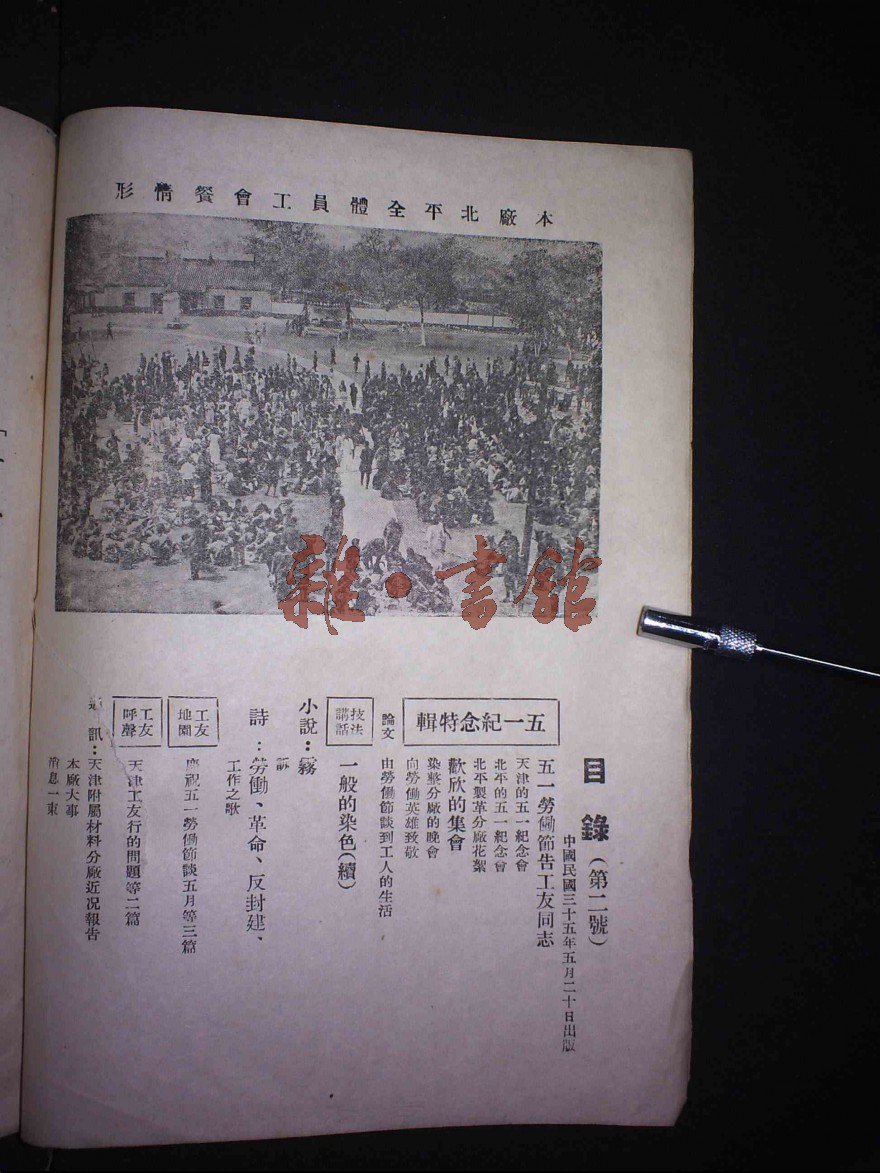 本廠北平全體員工會餐情形
雜·書館
目錄(第二號)
中國民國三十五年五月二十日出版
五一紀念特輯
五一勞働節告工友同志
天津的五一紀念會
北平的五一紀念會
北平製革分廠花絮
歡欣的集會
染整分廠的晚會
向勞働英雄致敬
論文
由勞働節談到工人的生活
技法講話
一般的染色(續)
小說：霧
訴
詩：勞働、革命、反封建、
工作之歌
工友地園
慶祝五一勞働節談五月等三篇
工友呼聲
天津工友行的問題等二篇
通訊：天津附屬材料分廠近况報告
本廠大事
消息一束